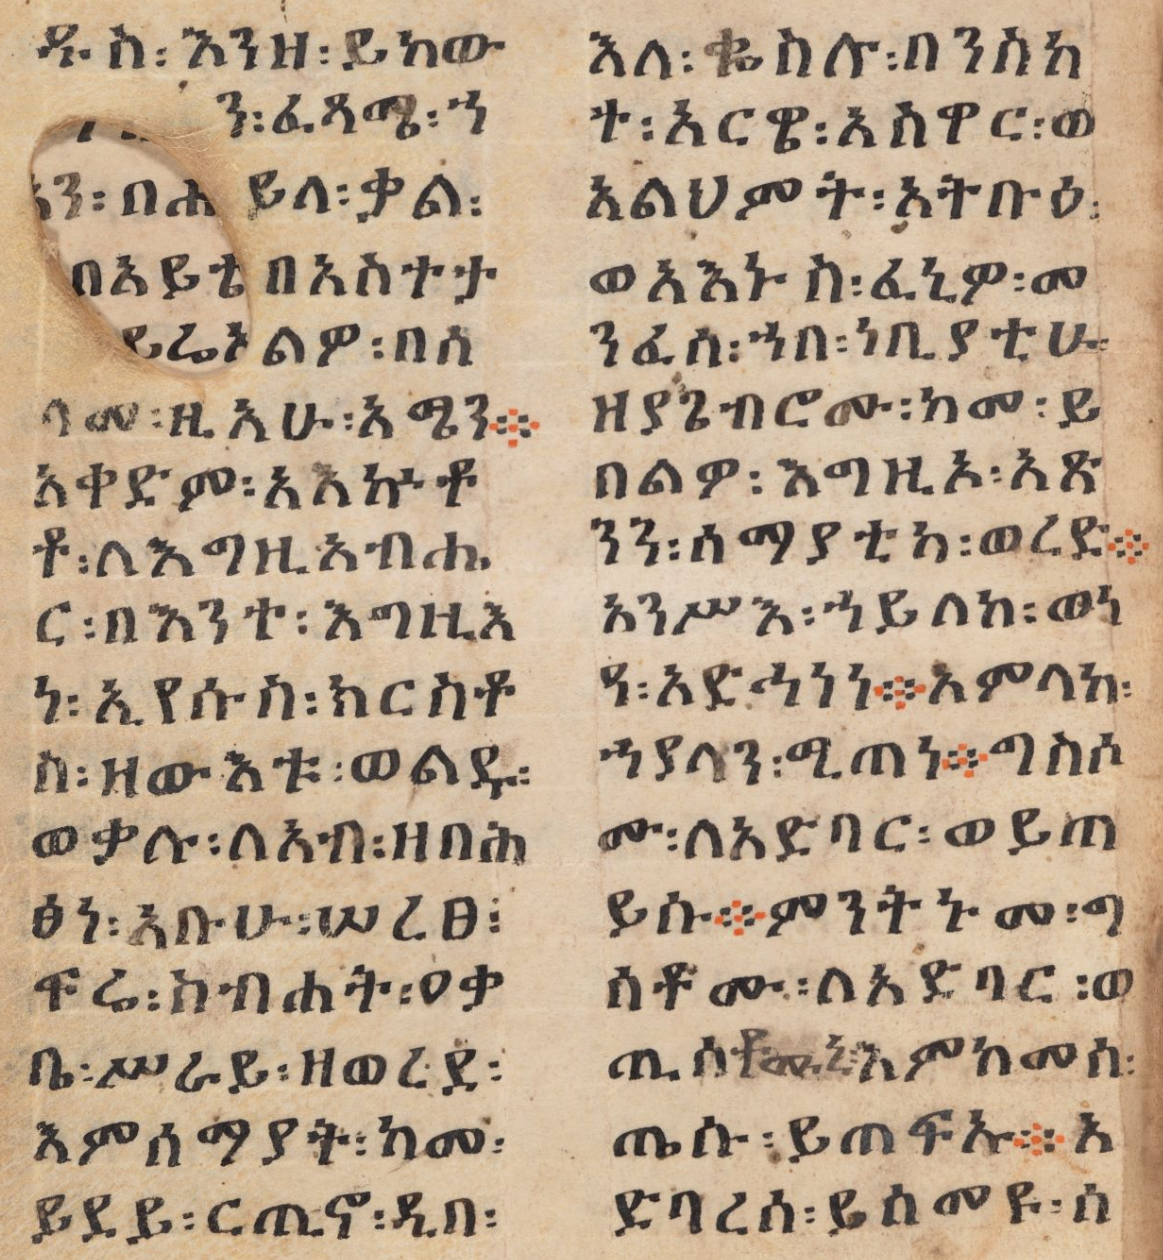 ዱስ፡ እንዘ፡ ይከው
ን፡ ፈጻሜ፡ ኀ
በሐ ይለ፡ ቃል፡
በአይቴ በአስተታ
ይሬእ ልዎ፡ በሰ
ላመ፡ ዚአሁ፡ አሜን፨
አቀድም፡ አአኵቶ
ቶ፡ ለእግዚአብሔ
ር፡ በእንተ፡ እግዚእ
ነ፡ ኢየሱስ፡ ክርስቶ
ስ፡ ዘውእቱ፡ ወልዱ፡
ወቃሉ፡ ለአብ፡ ዘበሕ
ፅነ፡ አቡሁ፡ ሠረፀ፡
ፍሬ፡ ስብሐት፡ ዐቃ
ቤ፡ ሥራይ፡ ዘወረደ፡
እምሰማያት፡ ከመ፡
ይደይ፡ ርጢኖ፡ ዲበ፡
እለ፡ ቈስሉ፡ በንስከ
ት፡ አርዌ፡ አስዋር፡ ወ
አልህምት፡ አትቡዕ፡
ወአእኑስ፡ ፈኒዎ፡ መ
ንፈሰ፡ ኀበ፡ ነቢያቲሁ፡
ዘያጌብሮሙ፡ ከመ፡ ይ
በልዎ፡ እግዚኦ፡ አጽ
ንን፡ ሰማያቲከ፡ ወረድ፨
አንሥእ፡ ኀይለከ፡ ወነ
ዓ፡ አድኅነነ፨ አምላከ፡
ኀያላን፡ ሚጠነ፨ ግስሶ
ሙ፡ ለአድባር፡ ወይጠ
ይሱ፨ ምንትኑ መ፡ ግ
ሰቶሙ፡ ለአድባር፡ ወ
ጢሰቶሙኒ፡ እምከመሰ፡
ጤሱ፡ ይጠፍኡ፨ እ
ድባረሰ፡ ይሰመዩ፡ ሰ